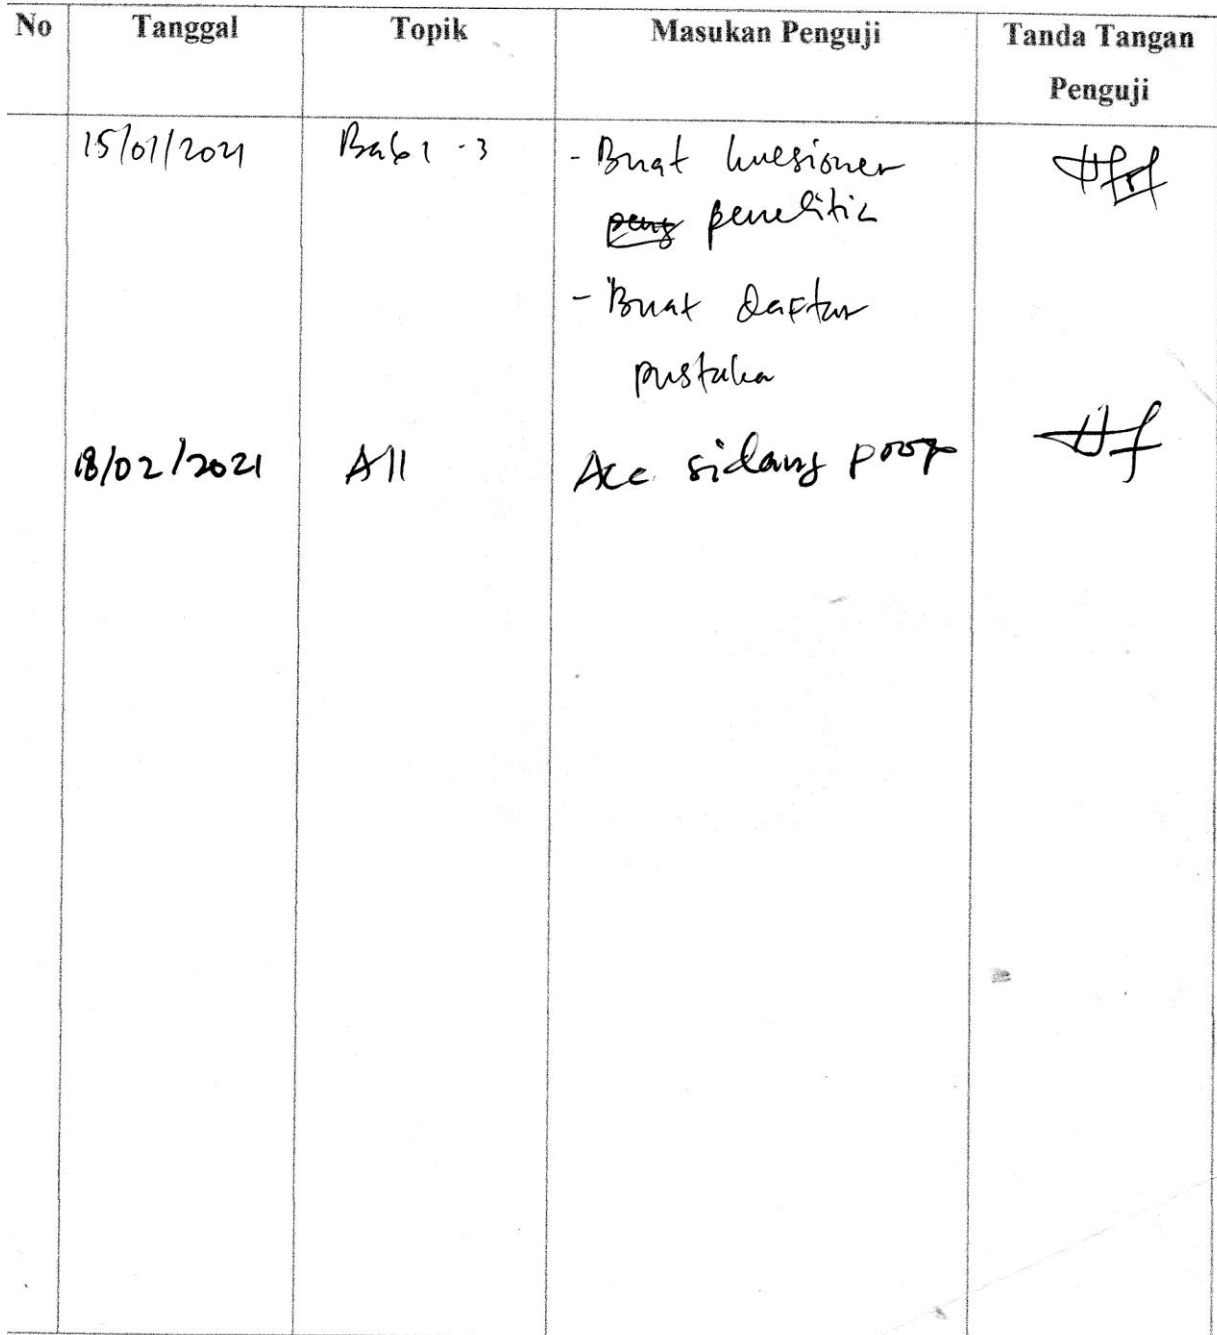 No Tanggal Topik Masukan Penguji Tanda Tangan
Penguji
15/01/2021 Bab 1 - 3 - Buat kuesioner
peng penelitia
- Buat daftar
pustaka
18/02/2021 All Acc sidang prop